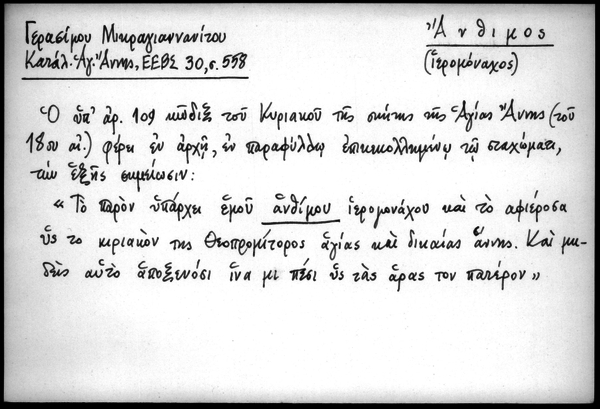 Γερασίμου Μικραγιαννανίτου
Κατάλ. Ἁγ. Ἄννης, ΕΕΒΣ 30, σ. 558
Ἄνθιμος
(ἱερομόναχος)
Ὁ ὑπ' ἀρ. 109 κῶδιξ τοῦ Κυριακοῦ τῆς σκήτης τῆς Ἁγίας Ἄννης (τοῦ
18ου αἰ.) φέρει ἐν ἀρχῇ, ἐν παραφύλλῳ ἐπικεκολλημένῳ τῷ σταχώματι,
τὴν ἑξῆς σημείωσιν:
« Τὸ παρὸν ὑπάρχει ἐμοῦ ἀνθίμου ἱερομονάχου καὶ τὸ αφιέροσα
ῆς το κιριακὸν της Θεοπρομίτορος ἁγίας καὶ δικαίας ἄννης. Καὶ μι-
δεὶς αὐτὸ ἀποξενόσι ἵνα μι πέσι ῆς τὰς ἀρὰς τον πατέρον »